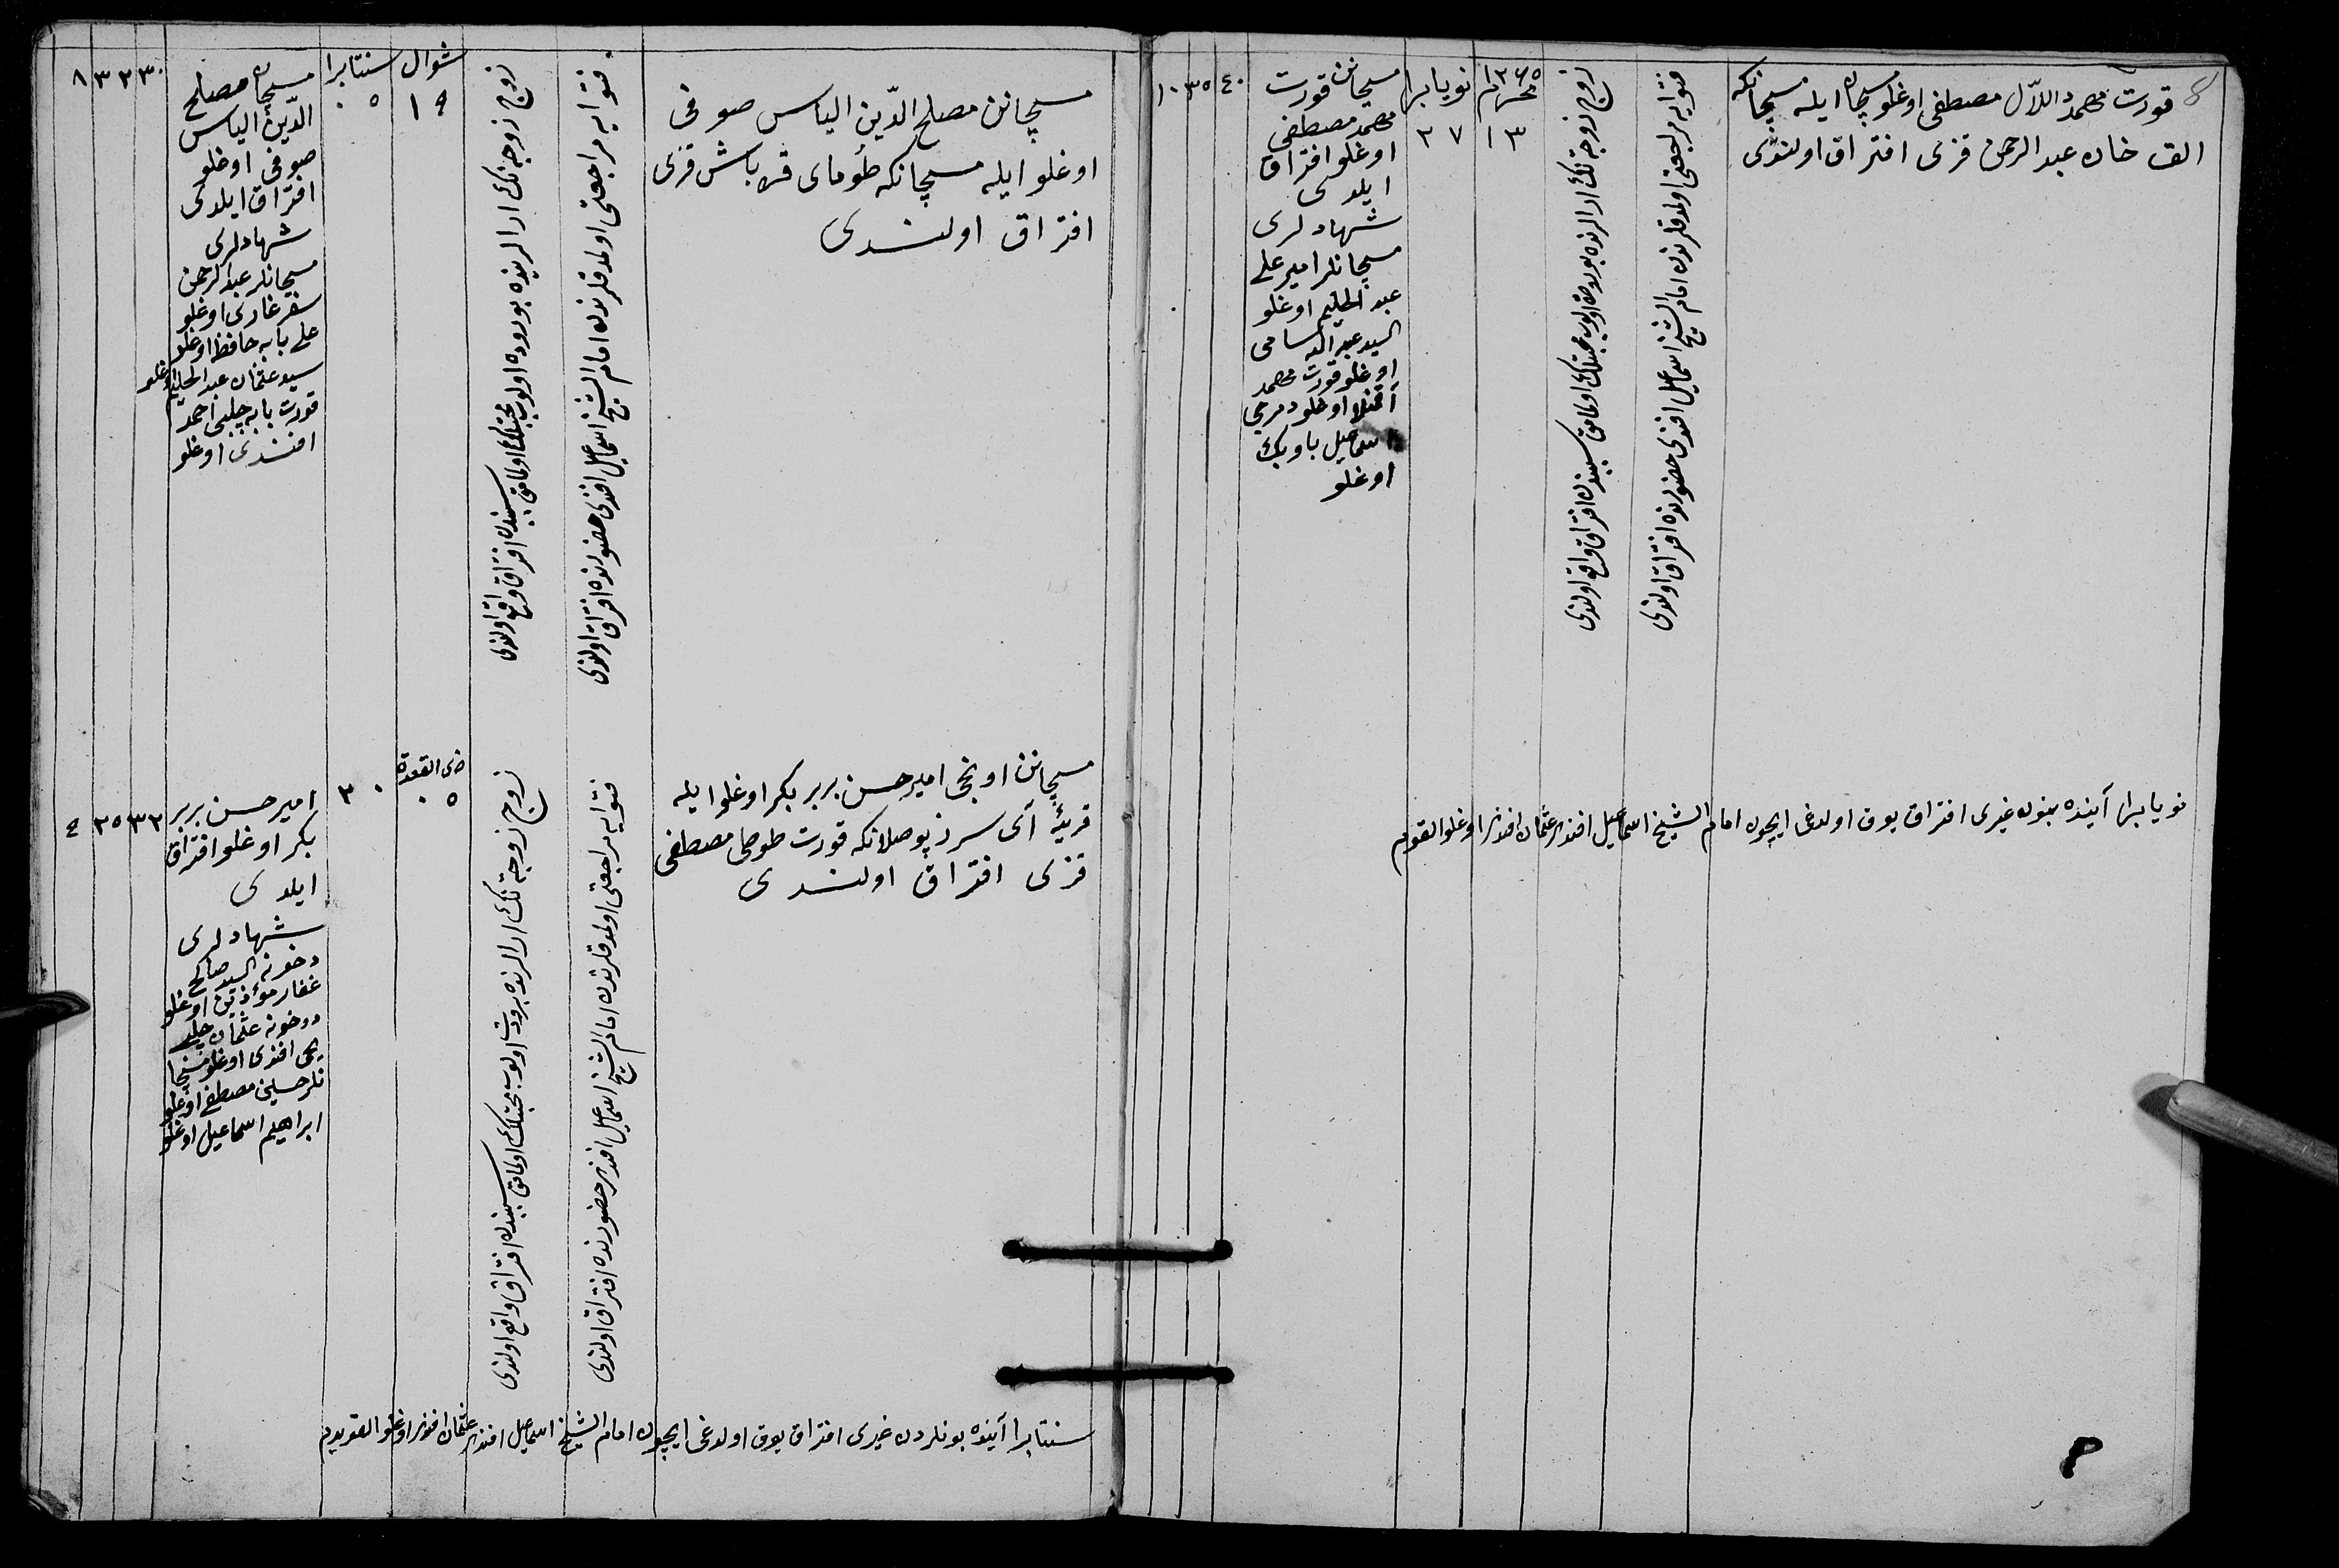 قورت محمد دللال مصطفى اوغلو مسچان ايله مسچانكه
الف خان عبد الرحمن قزى افتراق اولندى
فتوايه مراجعتى اولدقلرندن امام الشيخ اسماعيل افندى حضورنده افتراق اولندى
زوج زوجه نك ارالرنده برودة اولوب محبتلك اولمامق سببندن افتراق واقع اولندى
١٣٦٥
محرم
١٣
نويابرا
٢٧
مسچانن قورت
محمد مصطفى
اوغلو افتراق
ايلدى
شهادلرى
مسچانلر امير على
عبد الحليم اوغلو
السيد عبد الله سامى
اوغلو قورت محمد
اوغلو دمرجى
اسماعيل باوبك
اوغلو
٤٠
٣٥
١٠
نويابرا آينده بنون غيرى افتراق يوق اولدغى ايچون امام الشيخ اسماعيل افندى عثمان افندى اوغلو القويم
مسچانن مصلح الدّين الياس صوفى
اوغلو ايله مسچانكه طوماى قره باش قزى
افتراق اولندى
فتوايه مراجعتى اولدقلرندن امام الشيخ اسماعيل افندى حضورنده افتراق اولندى
زوج زوجه نك ارالرنده برودة اولوب محبتلك اولمامق سببندن افتراق واقع اولندى
شوال
١٩
سنتابرا
٠٥
مسچان مصلح
الدّين الياس
صوفى اوغلو
افتراق ايلدى
شهادلرى
مسچانلر عبد الرحمن
سفر غازى اوغلو
على بابه حافظ اوغلو
سيد عثمان عبد الحليم اوغلو
قورت بابه چلبى احمد
افندى اوغلو
٣٠
٣٣
٨
مسچانن اونجى امير حسن بربر بكر اوغلو ايله
قريۀ آى سرز پوصلانكه قورت طوخى مصطفى
قزى افتراق اولندى
فتوايه مراجعتى اولدقلرندن امام الشيخ اسماعيل افندى حضورنده افتراق اولندى
زوج زوجه نك ارالرنده برودت اولوب محبتلك اولمامق سببندن افتراق واقع اولندى
ذى القعدة
٠٥
٣٠
امير حسن بربر
بكر اوغلو افتراق
ايلدى
شهادلرى
دخونه السيد صالح
غفار مؤذين اوغلو
دوخونه عثمان چلبى
يحى افندى اوغلو مسچا
نلر حسين مصطفى اوغلو
ابراهيم اسماعيل اوغلو
٣٢
٢٥
٤
سنتابرا آينده بونلردن غيرى افتراق يوق اولدغى ايچون امام الشيخ اسماعيل افندى عثمان افندى اوغلو القويدم